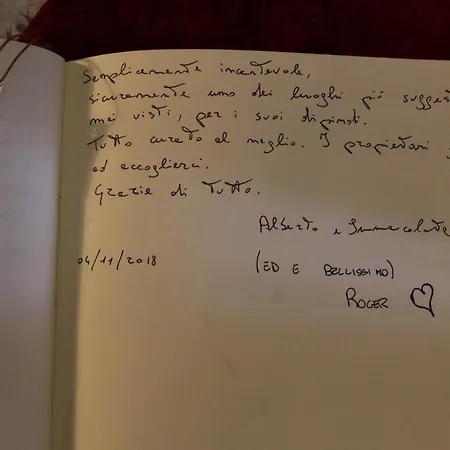 Semplicemente incantevole,
sicuramente uno dei luoghi più sugges
mai visti, per i suoi dipinti.
Tutto curato al meglio. I propietari
ad accoglierci.
Grazie di Tutto.
Alberto e Immacolata
04/11/2018
(ED E BELLISSIMO)
ROGER ♡